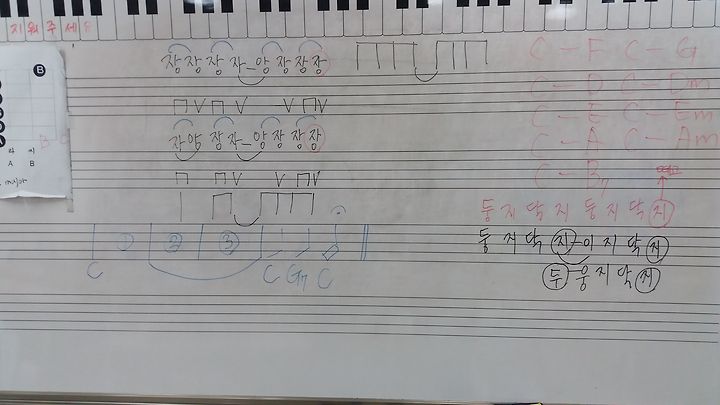 지 워 주 세 요
B
A B
장 장 장 자 – 앙 장 장 장
자 앙 장 자 – 앙 장 장 장
C – F C – G
C – D C – Dm
C – E C – Em
C – A C – Am
C – B7
둥 지 닥 지 둥 지 닥 지
둥 지 닥 지 – 이 지 닥 지
두 – 웅 지 닥 지
① ② ③
C C G7 C